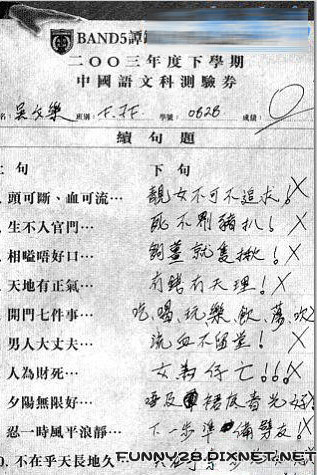 BAND5譚
二〇〇三年度下學期
中國語文科測驗券
名: 吳文樂 班別: F. 學號: 0628 成績: 0
續句題
上句 下句
頭可斷、血可流… 靚女不可不追求!X
生不入官門… 死不劏豬扒!X
相嗌唔好口… 劏薑就隻揪!X
天地有正氣… 有錢有天理!X
開門七件事… 吃、喝、玩、樂、飲、蕩、吹X
男人大丈夫… 流血不留堂!X
人為財死… 女為仔亡!!!X
夕陽無限好… X
忍一時風平浪靜… 下一步準備劈友!X
0. 不在乎天長地久
FUNNY28.PIXNET.NET